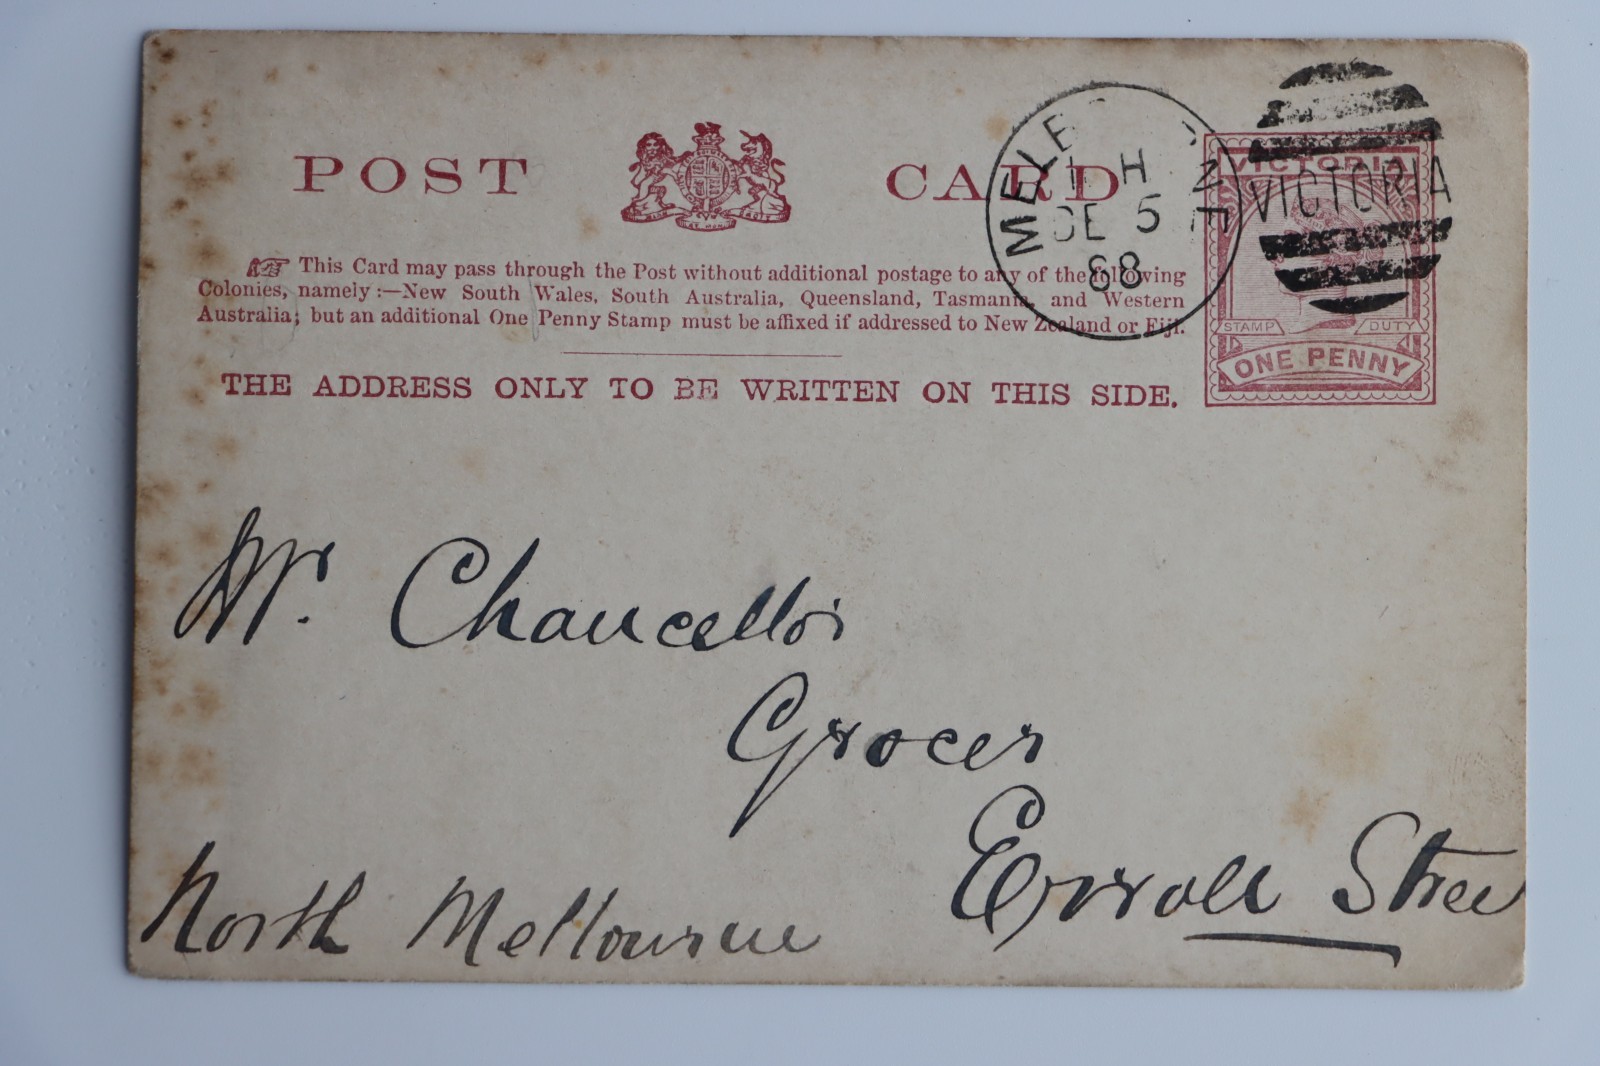 POST CARD
MELB NE
1 H
DE 5
88
VICTORIA
VICTORIA
This Card may pass through the Post without additional postage to any of the following
Colonies, namely:—New South Wales, South Australia, Queensland, Tasmania, and Western
Australia; but an additional One Penny Stamp must be affixed if addressed to New Zealand or Fiji.
STAMP DUTY
ONE PENNY
THE ADDRESS ONLY TO BE WRITTEN ON THIS SIDE.
Mr. Chancellor
Grocer
Erroll Stree
North Melbourne